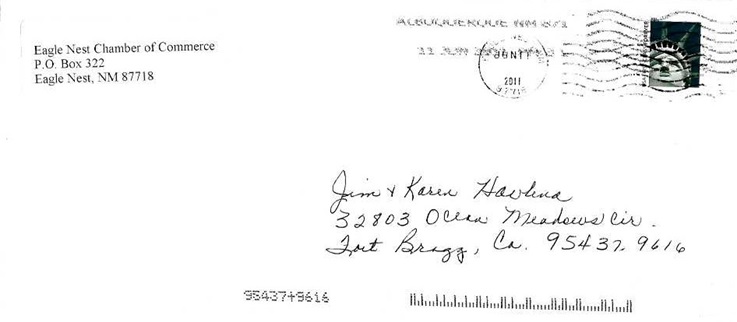 ALBUQUERQUE NM 871
Eagle Nest Chamber of Commerce
P.O. Box 322
Eagle Nest, NM 87718
11 JUN
JUN 11
2011
Jim & Karen Havlena
32803 Ocean Meadows Cir.
Fort Bragg, Ca. 95437-9616
95437+9616